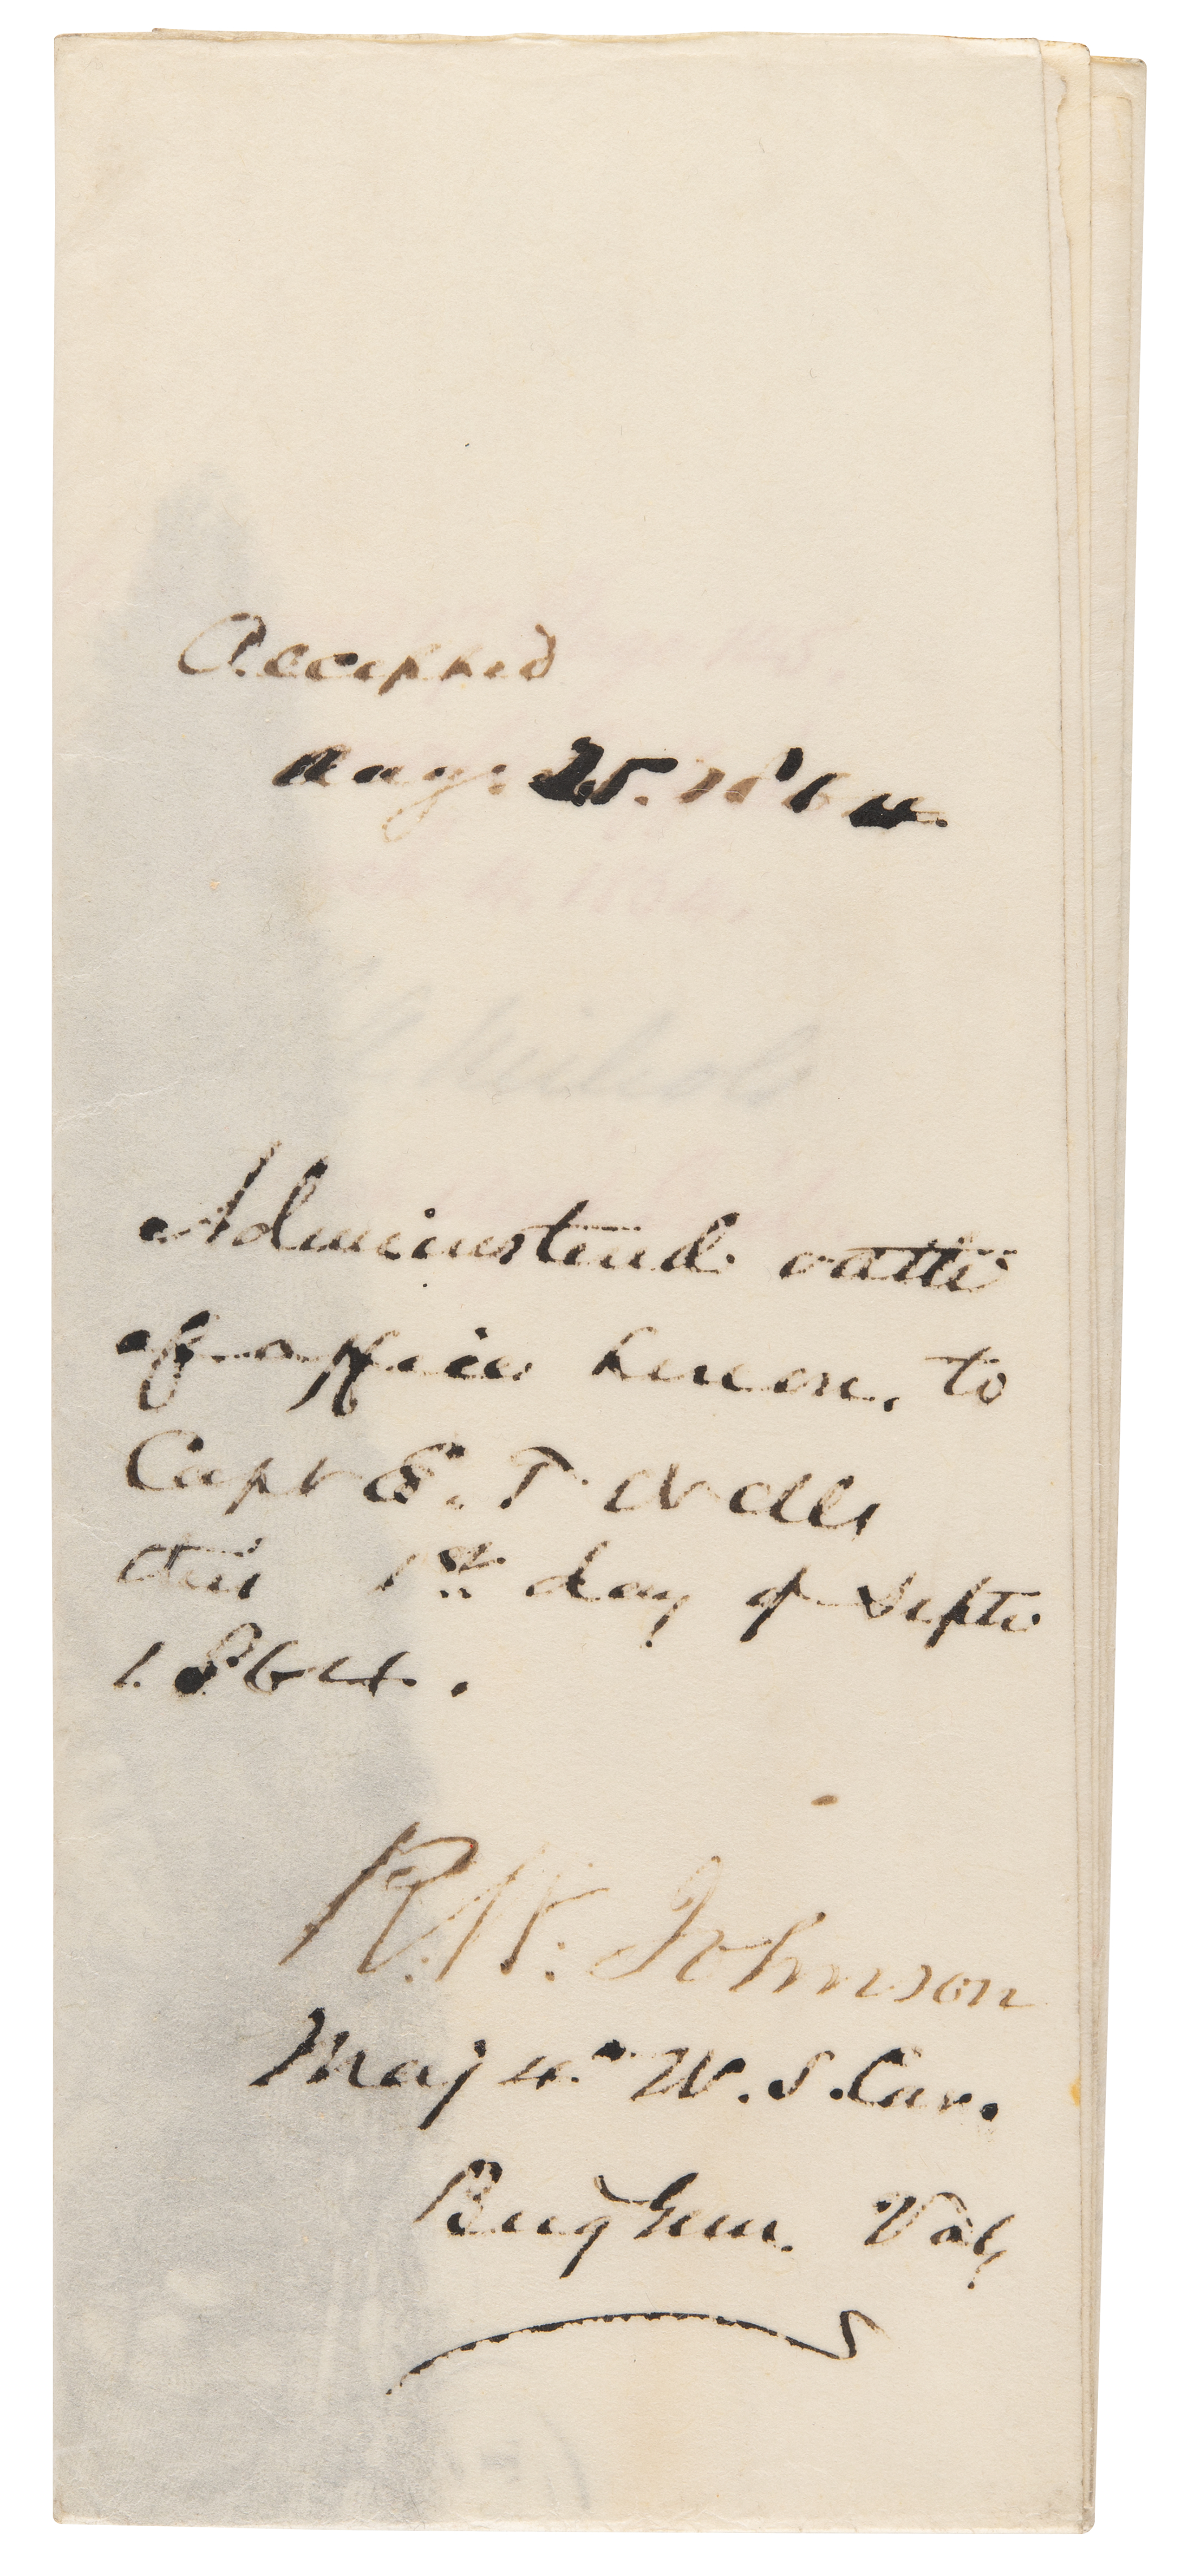 Accepted
Aug: 25. 1864.
Administered oath
of office hereon, to
Capt E. T. Wells
this 1st day of Septr
1864.
R. W. Johnson
Maj 4th U. S. Cav.
Brig Genl. Vols